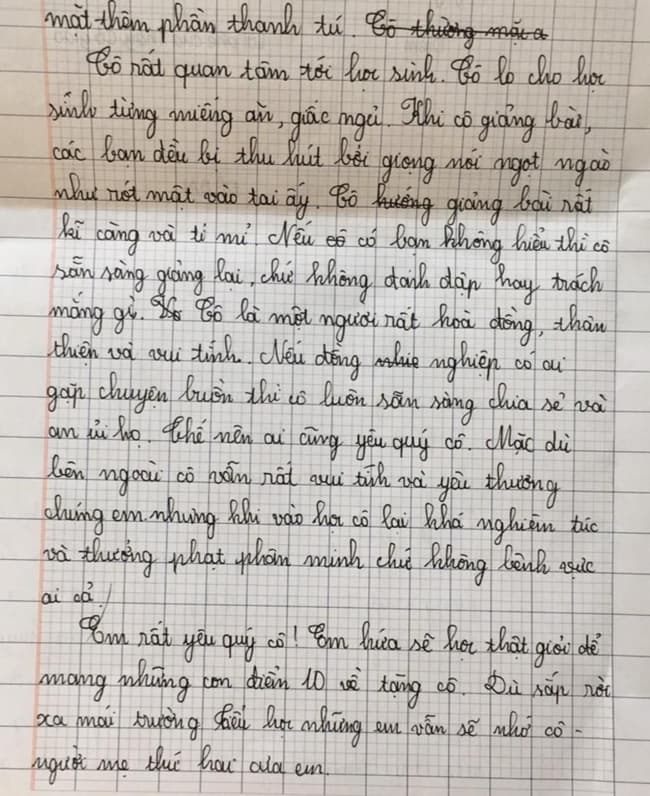 mặt thêm phần thanh tú. Cô thường mặc a
Cô rất quan tâm tới học sinh. Cô lo cho học
sinh từng miếng ăn, giấc ngủ. Khi cô giảng bài,
các bạn đều bị thu hút bởi giọng nói ngọt ngào
như rót mật vào tai ấy. Cô hướng giảng bài rất
kĩ càng và tỉ mỉ. Nếu cô có bạn không hiểu thì cô
sẵn sàng giảng lại, chứ không đánh đập hay trách
mắng gì. Cô là một người rất hoà đồng, thân
thiện và vui tính. Nếu đồng nghiệp có ai
gặp chuyện buồn thì cô luôn sẵn sàng chia sẻ và
an ủi họ. Thế nên ai cũng yêu quý cô. Mặc dù
bên ngoài cô vẫn rất vui tính và yêu thương
chúng em nhưng khi vào học cô lại khá nghiêm túc
và thưởng phạt phân minh chứ không bênh vực
ai cả!
Em rất yêu quý cô! Em hứa sẽ học thật giỏi để
mang những con điểm 10 về tặng cô. Dù sắp rời
xa mái trường tiểu học nhưng em vẫn sẽ nhớ cô -
người mẹ thứ hai của em.